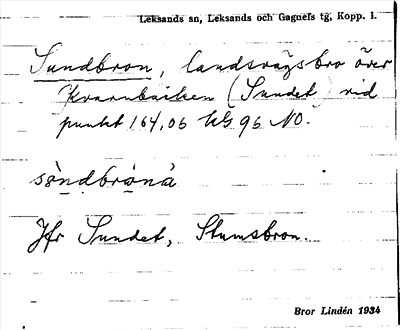 Leksands sn, Leksands och Gagnefs tg, Kopp. l.
Sundbron, landsvägsbro över
Kvarnbäcken (Sundet) vid
punkt 164,06 kb 96 NO.
sòndbrònà
Jfr Sundet, Stumsbron.
Bror Lindén 1934